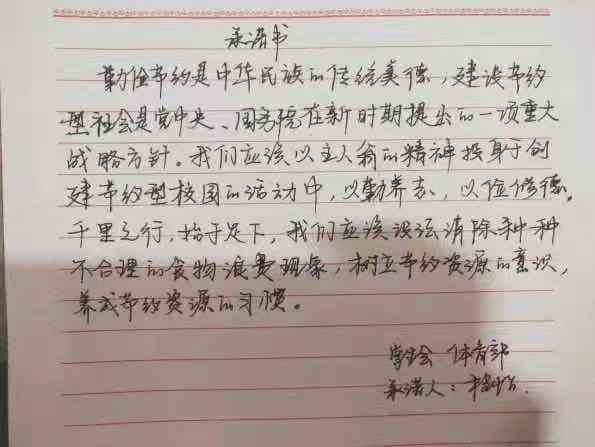 承诺书
勤俭节约是中华民族的传统美德,建设节约
型社会是党中央、国务院在新时期提出的一项重大
战略方针。我们应该以主人翁的精神投身于创
建节约型校园的活动中,以勤养志,以俭修德。
千里之行,始于足下,我们应该设法消除种种
不合理的食物浪费现象,树立节约资源的意识,
养成节约资源的习惯。
学生会 体育部
承诺人: